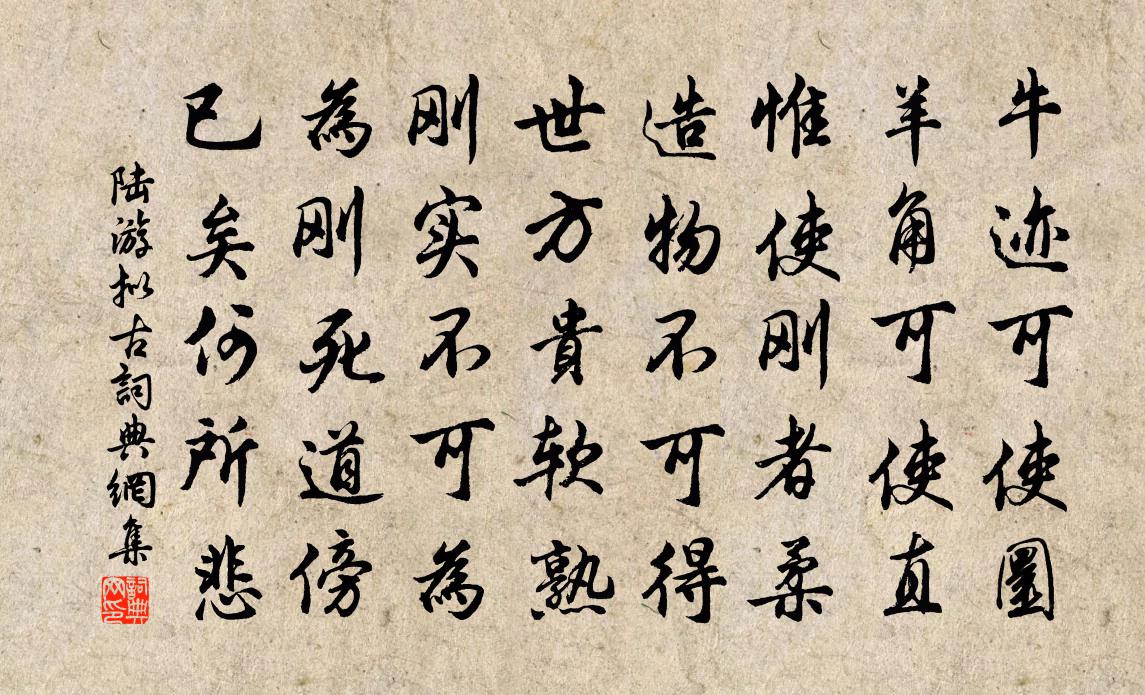 牛迹可使圆
羊角可使直
惟使刚者柔
造物不可得
世方貴软熟
刚实不可為
為刚死道傍
已矣何所悲
陆游拟古詞典網集
詞典网印